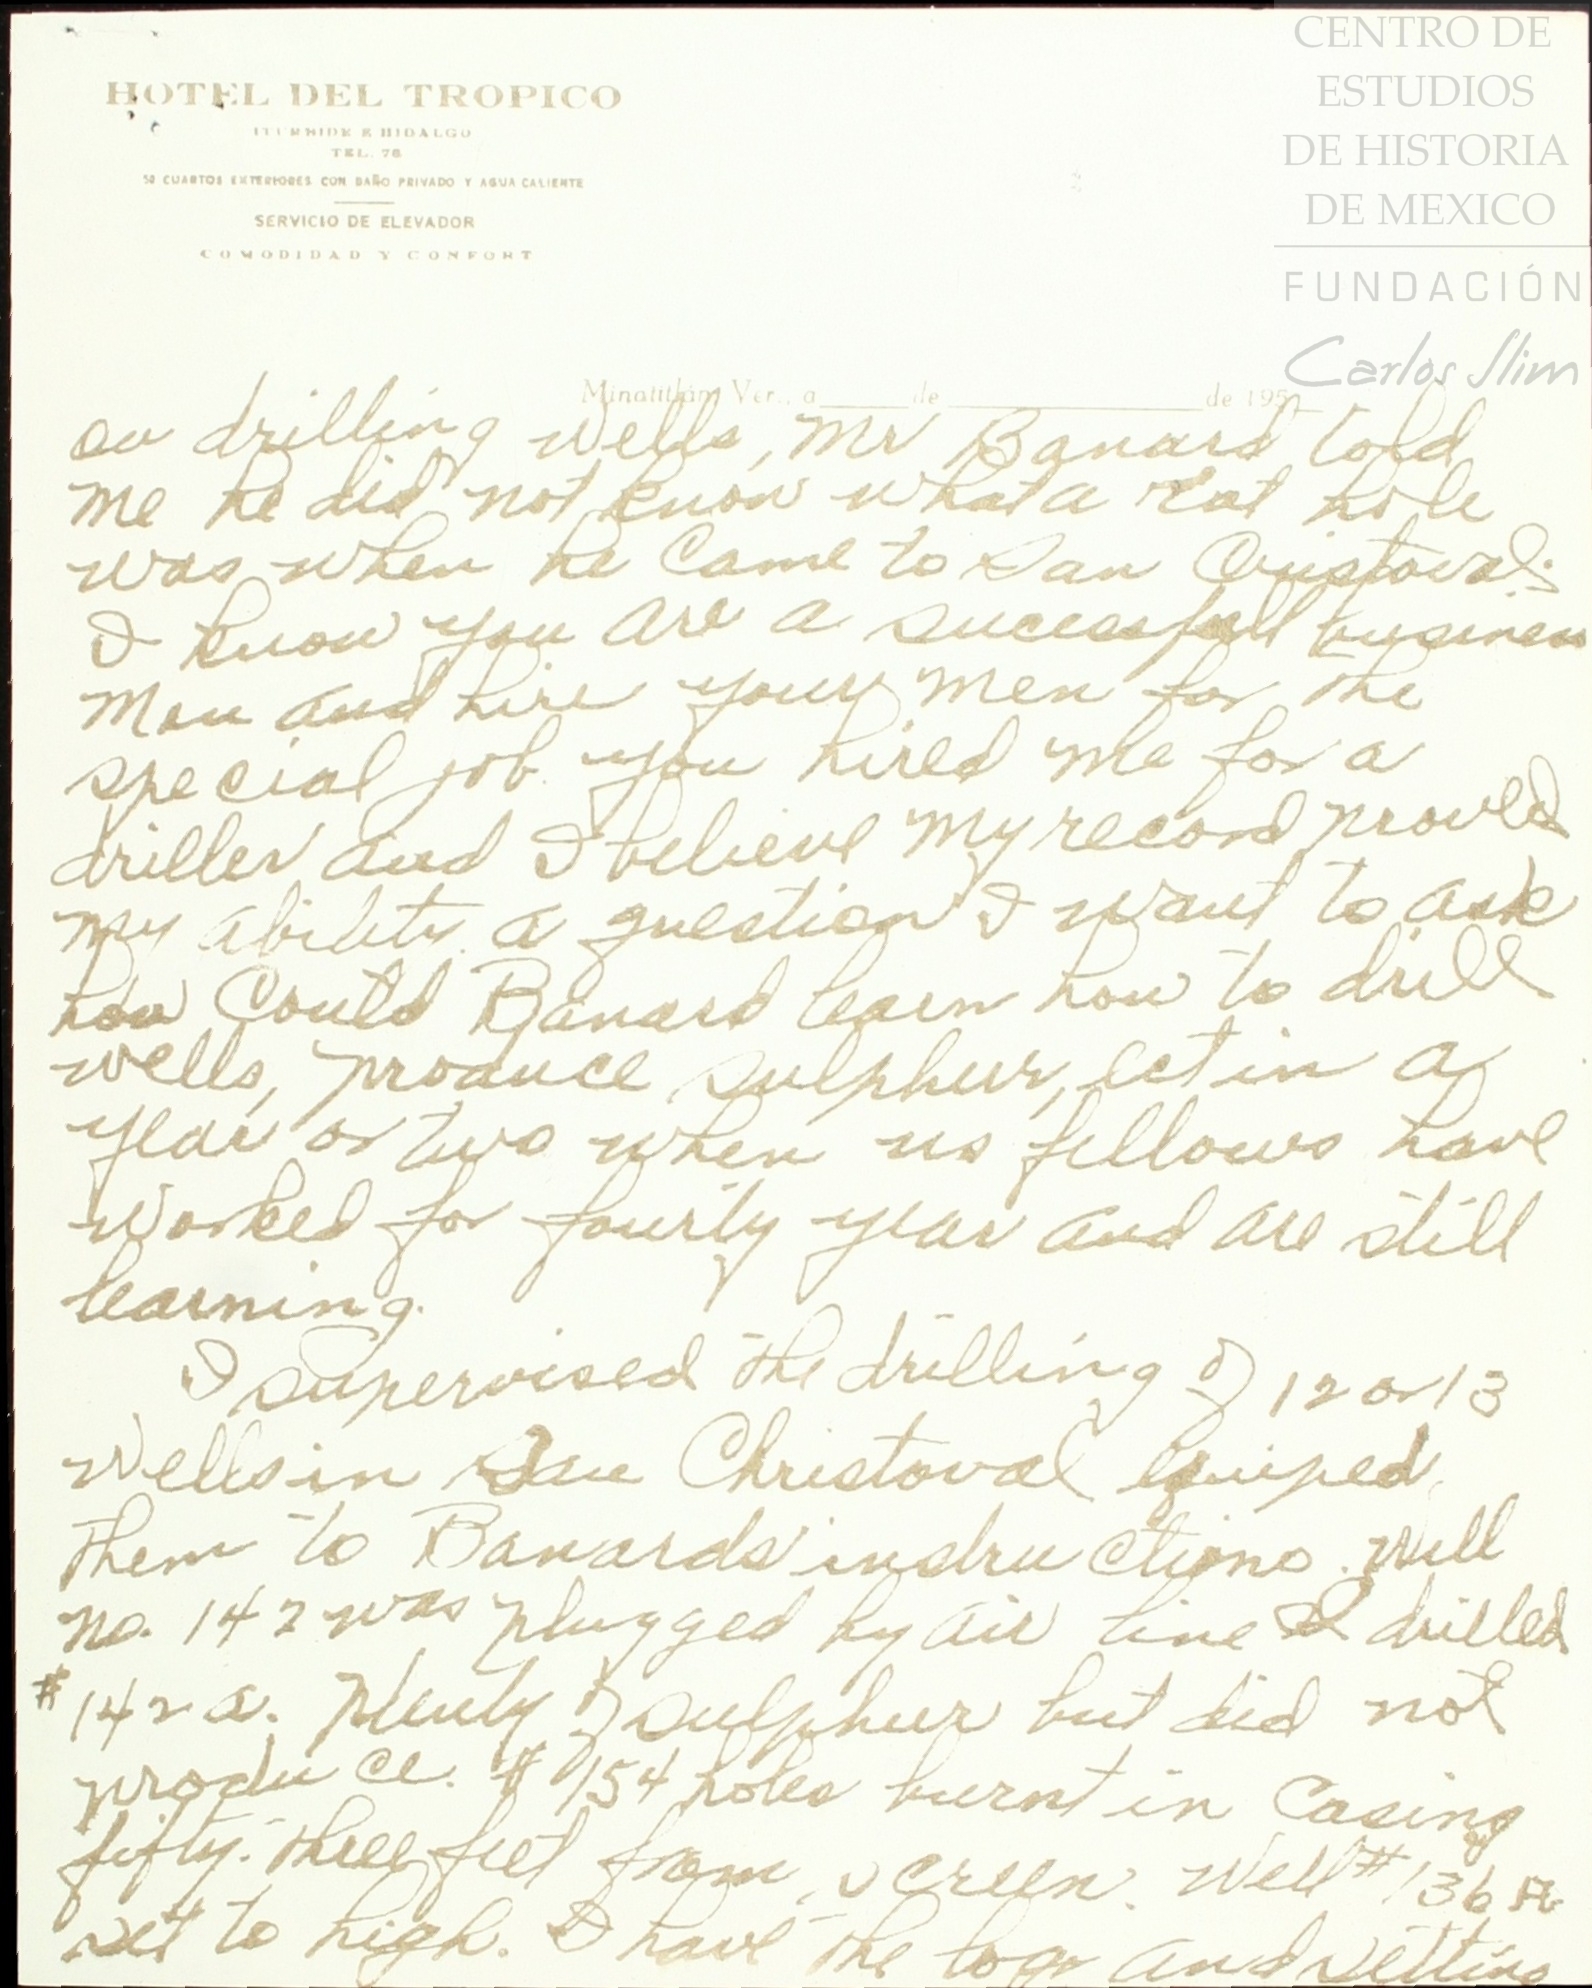 CENTRO DE
ESTUDIOS
DE HISTORIA
DE MEXICO
FUNDACIÓN
Carlos Slim
HOTEL DEL TROPICO
ITURBIDE E HIDALGO
TEL. 76
50 CUARTOS EXTERIORES CON BAÑO PRIVADO Y AGUA CALIENTE
SERVICIO DE ELEVADOR
COMODIDAD Y CONFORT
Minatitlán, Ver., a de de 195
on drilling wells, Mr Banard told
me he did not know what a rat hole
was when he came to San Cristoval.
I know you are a sucessfull business
man and hire your men for the
special job. you hired me for a
driller and I believe my record proved
my ability. a question I want to ask
how could Banard learn how to drill
wells, produce sulphur, ect in a
year or two when us fellows have
worked for fourty year and are still
learning.
I supervised the drilling of 12 or 13
wells in San Christoval equiped
them to Banards instructions. Well
no. 142 was plugged by air line I drilled
#142 a. Plenty of sulphur but did not
produce. #154 holes burnt in casing
fifty-three feet from screen. Well #136
set to high. I have the logs and setting